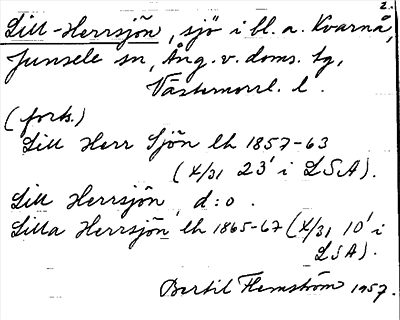 2.
Lill-Herrsjön, sjö i bl. a. Kvarnå,
Junsele sn, Ång. v. doms. tg,
Västernorrl. l.
(forts.)
Lill Herr Sjön lh 1857-63
(X/31 23' i LSA).
Lill Herrsjön d:o.
Lilla Herrsjön lh 1865-67 (X/31 10' i
LSA).
Bertil Flemström 1957.